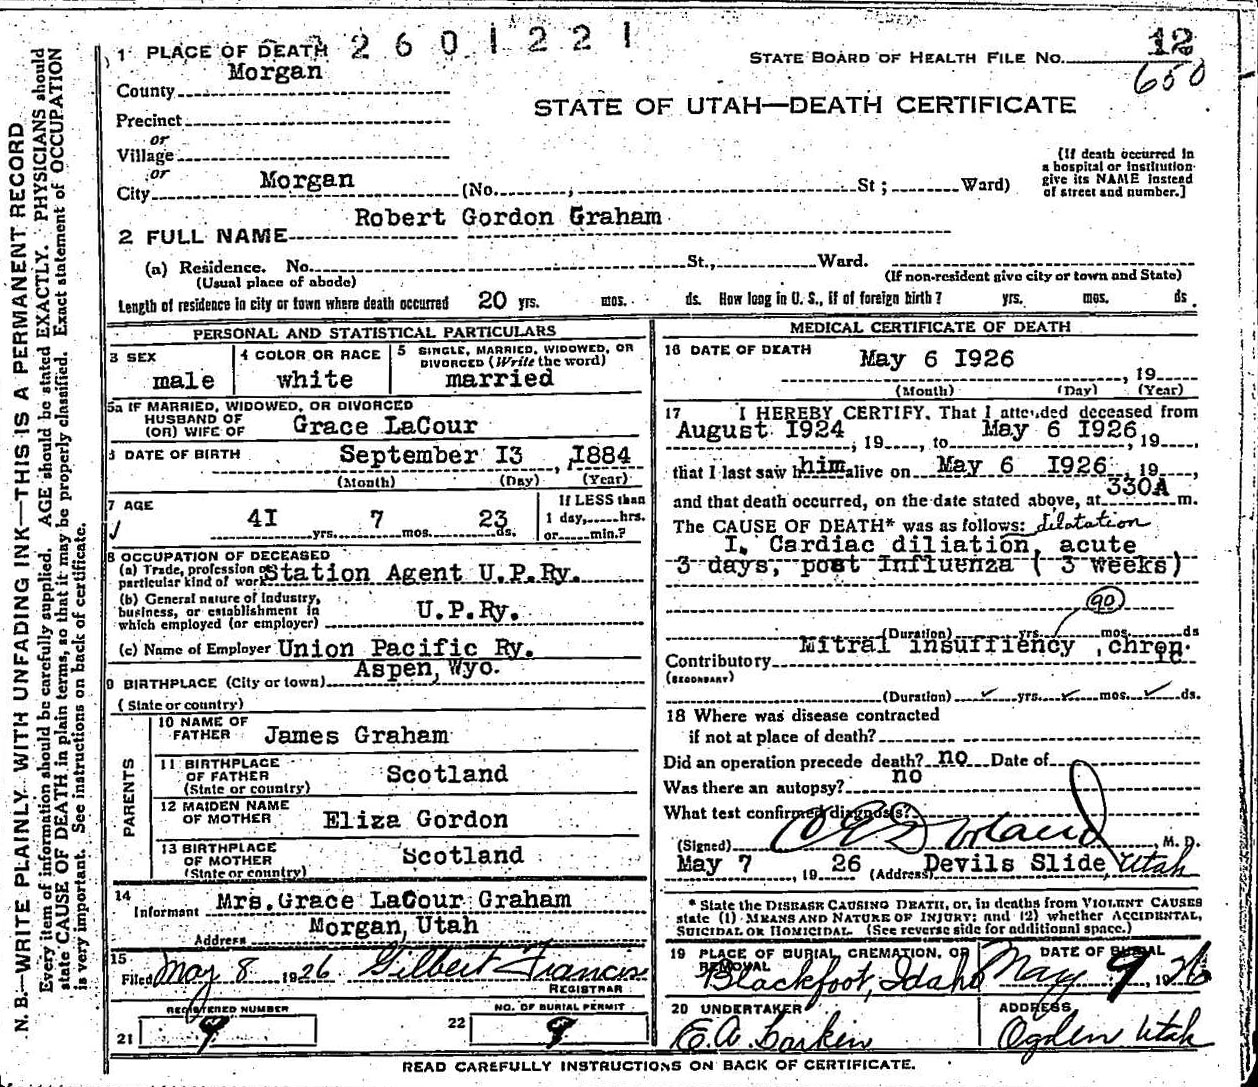 N.B.—WRITE PLAINLY, WITH UNFADING INK—THIS IS A PERMANENT RECORD
Every item of information should be carefully supplied. AGE should be stated EXACTLY. PHYSICIANS should
state CAUSE OF DEATH in plain terms, so that it may be properly classified. Exact statement of OCCUPATION
is very important. See instructions on back of certificate.
2601221
1 PLACE OF DEATH
STATE BOARD OF HEALTH FILE No. 12
650
County Morgan
STATE OF UTAH—DEATH CERTIFICATE
Precinct
or
Village
or
City Morgan (No. , St; Ward)
[If death occurred in
a hospital or institution
give its NAME instead
of street and number.]
2 FULL NAME Robert Gordon Graham
(a) Residence. No. St., Ward.
(Usual place of abode) (If non-resident give city or town and State)
Length of residence in city or town where death occurred 20 yrs. mos. ds. How long in U. S., if of foreign birth? yrs. mos. ds.
PERSONAL AND STATISTICAL PARTICULARS
3 SEX
male
4 COLOR OR RACE
white
5 SINGLE, MARRIED, WIDOWED, OR
DIVORCED (Write the word)
married
5a IF MARRIED, WIDOWED, OR DIVORCED
HUSBAND OF
(OR) WIFE OF Grace LaCour
6 DATE OF BIRTH September I3, 1884
(Month) (Day) (Year)
7 AGE
4I yrs. 7 mos. 23 ds.
If LESS than
1 day,.....hrs.
or......min.?
8 OCCUPATION OF DECEASED
(a) Trade, profession or
particular kind of work Station Agent U.P.Ry.
(b) General nature of industry,
business, or establishment in
which employed (or employer) U.P.Ry.
(c) Name of Employer Union Pacific Ry.
9 BIRTHPLACE (City or town) Aspen, Wyo.
(State or country)
PARENTS
10 NAME OF
FATHER James Graham
11 BIRTHPLACE
OF FATHER Scotland
(State or country)
12 MAIDEN NAME
OF MOTHER Eliza Gordon
13 BIRTHPLACE
OF MOTHER Scotland
(State or country)
14
Informant Mrs.Grace LaCour Graham
Address Morgan, Utah
15
Filed May 8 1926 Gilbert Francis
REGISTRAR
REGISTERED NUMBER
21 9
NO. OF BURIAL PERMIT
22 9
MEDICAL CERTIFICATE OF DEATH
16 DATE OF DEATH May 6 I926
, 19
(Month) (Day) (Year)
17 I HEREBY CERTIFY, That I attended deceased from
August I924, 19...., to May 6 I926, 19....,
that I last saw him alive on May 6 I926, 19....,
and that death occurred, on the date stated above, at 330A m.
The CAUSE OF DEATH* was as follows: dilatation
I. Cardiac diliation, acute
3 days, post Influenza ( 3 weeks)
90
(Duration) yrs. mos. ds
Contributory Mitral insuffiency ,chron-
ic
(SECONDARY)
(Duration) ✓ yrs. ✓ mos. ✓ ds.
18 Where was disease contracted
if not at place of death?
Did an operation precede death? no Date of
Was there an autopsy? no
What test confirmed diagnosis?
(Signed) , M. D.
May 7, 19 26 (Address) Devils Slide, Utah
* State the DISEASE CAUSING DEATH, or, in deaths from VIOLENT CAUSES
state (1) MEANS AND NATURE OF INJURY; and (2) whether ACCIDENTAL,
SUICIDAL OR HOMICIDAL. (See reverse side for additional space.)
19 PLACE OF BURIAL, CREMATION, OR
REMOVAL
Blackfoot, Idaho
DATE OF BURIAL
May 9, 1926
20 UNDERTAKER
E.A. Larkin
ADDRESS
Ogden Utah
READ CAREFULLY INSTRUCTIONS ON BACK OF CERTIFICATE.